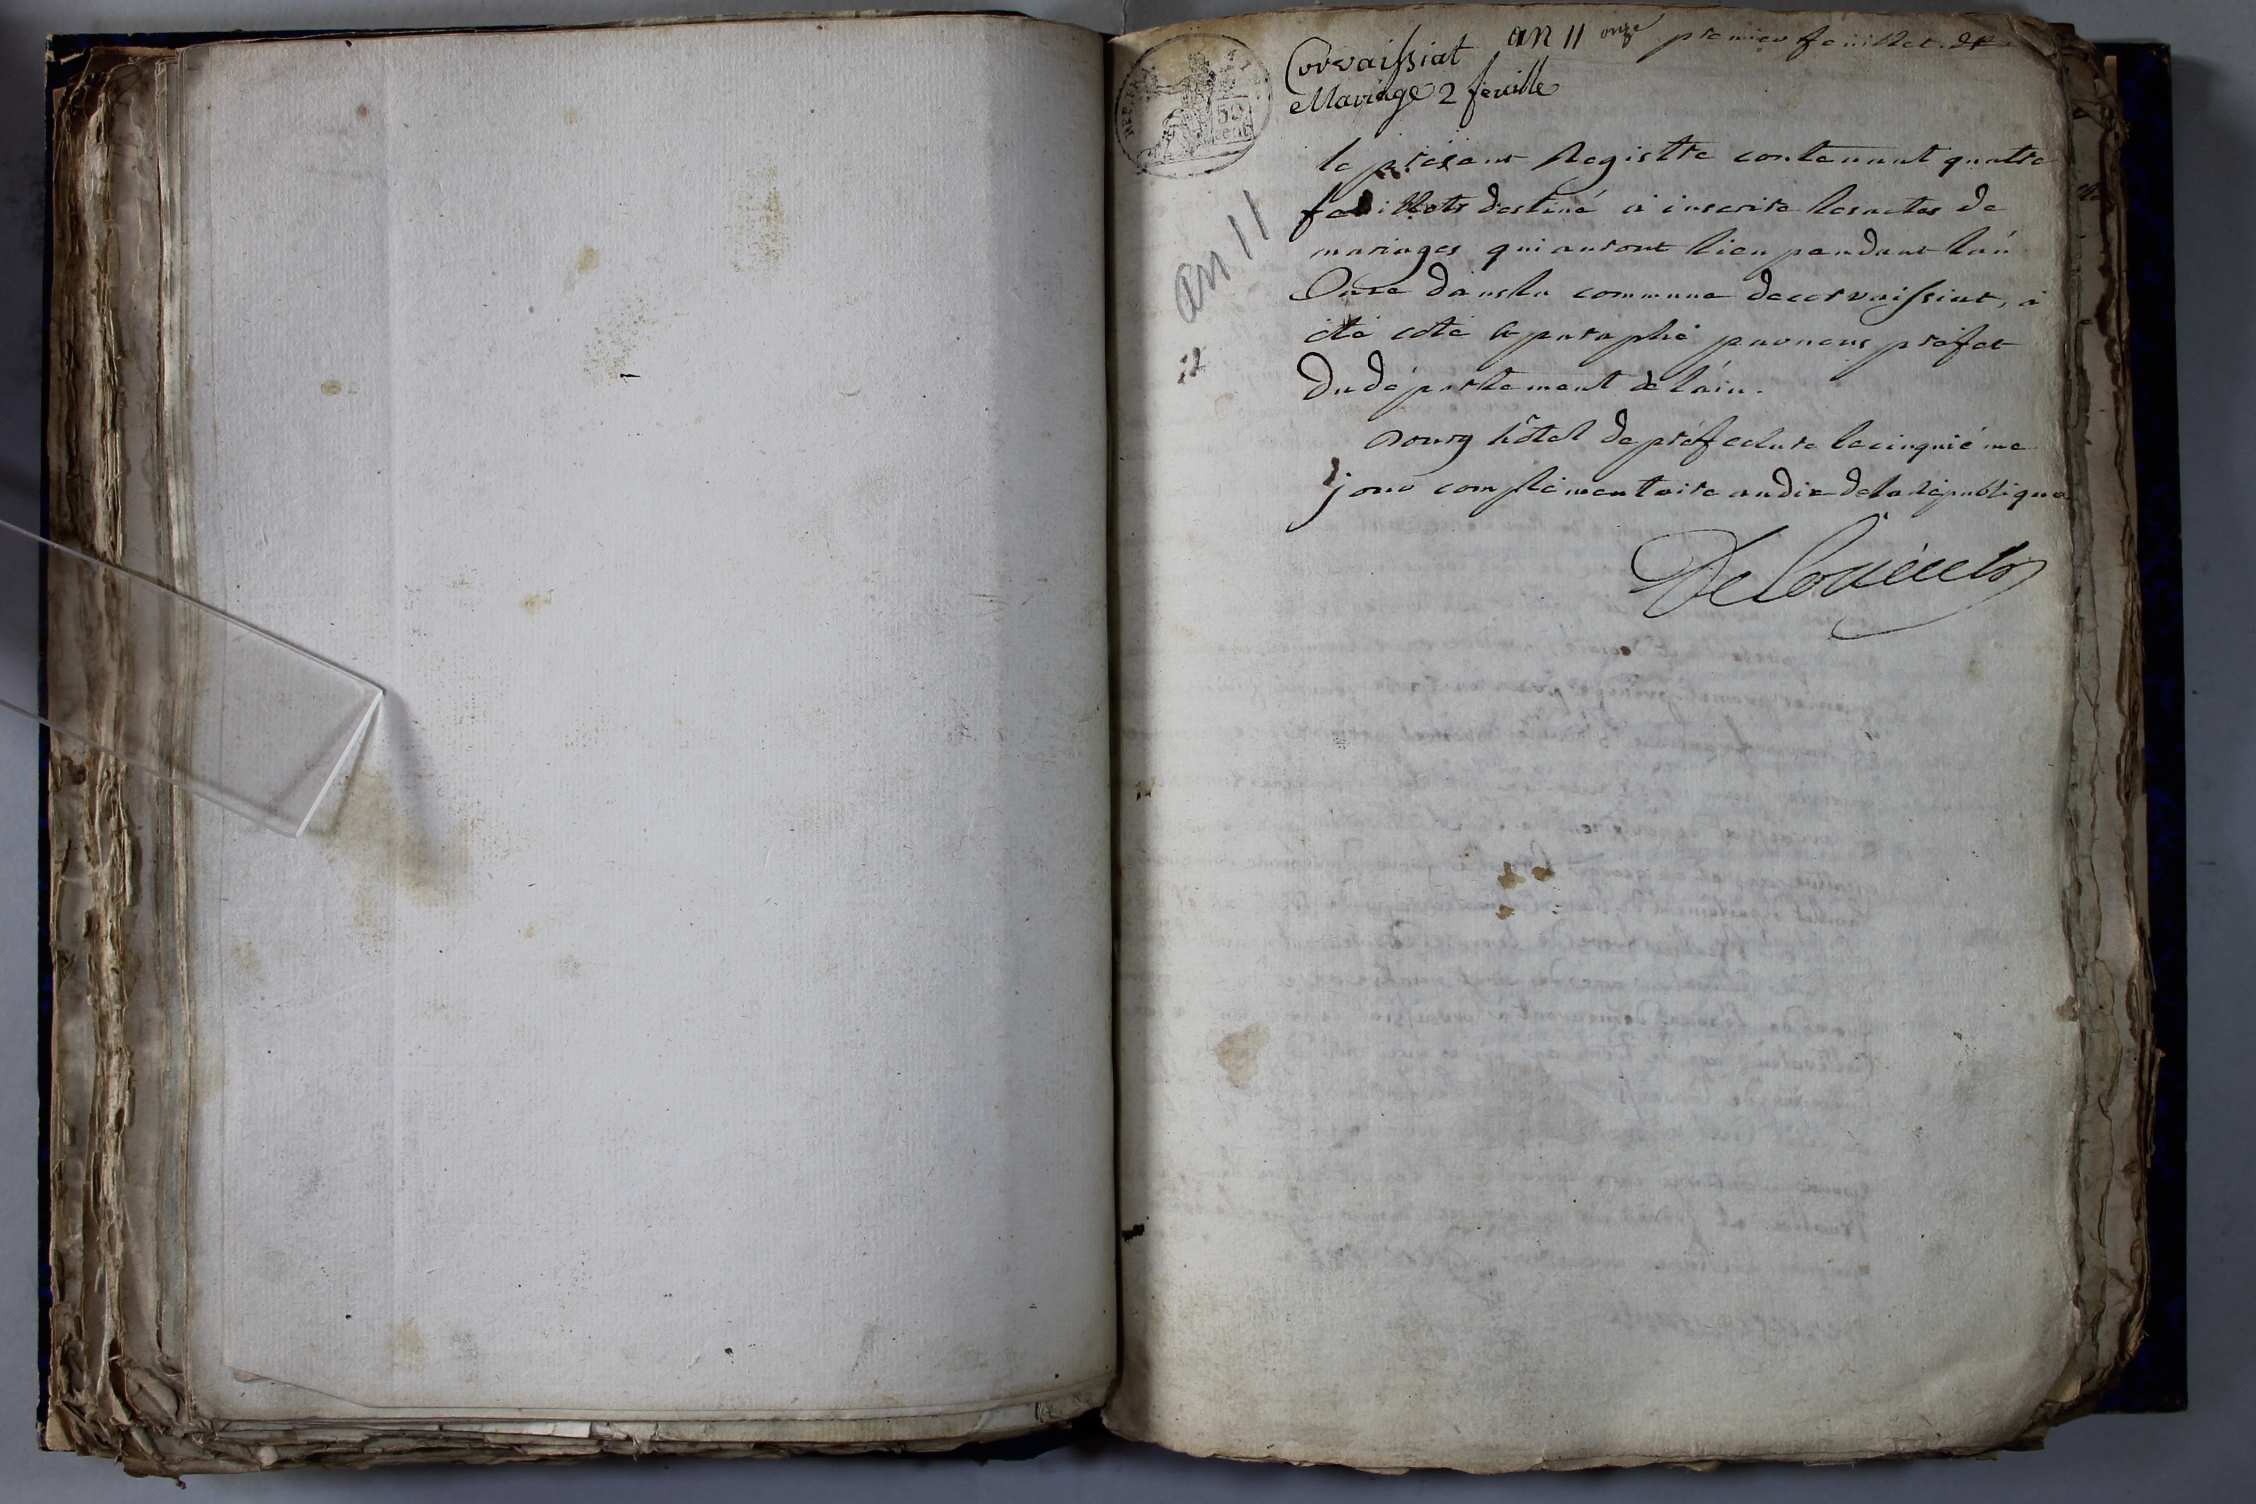 an 11 onze premier feuillet. DC
Corvaissiat
Mariage 2 feuille
50
cent
an 11
le présent Registre contenant quatre
feuillets destiné à inscrire les actes de
mariages qui auront lieu pendant l'an
Onze dans la commune de corvaissiat, a
été coté & paraphé par nous préfet
Du département de l'ain.
Bourg hôtel de préfecture le cinquiéme
jour complémentaire an dix de la république